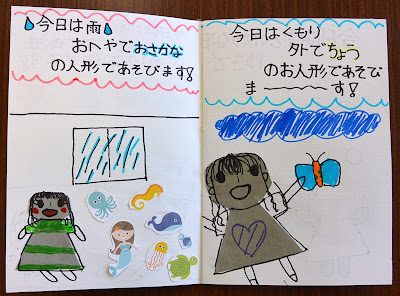 今日は雨
おへやでおさかな
の人形であそびます!
今日はくもり
外でちょう
のお人形であそび
ま〜〜〜す!